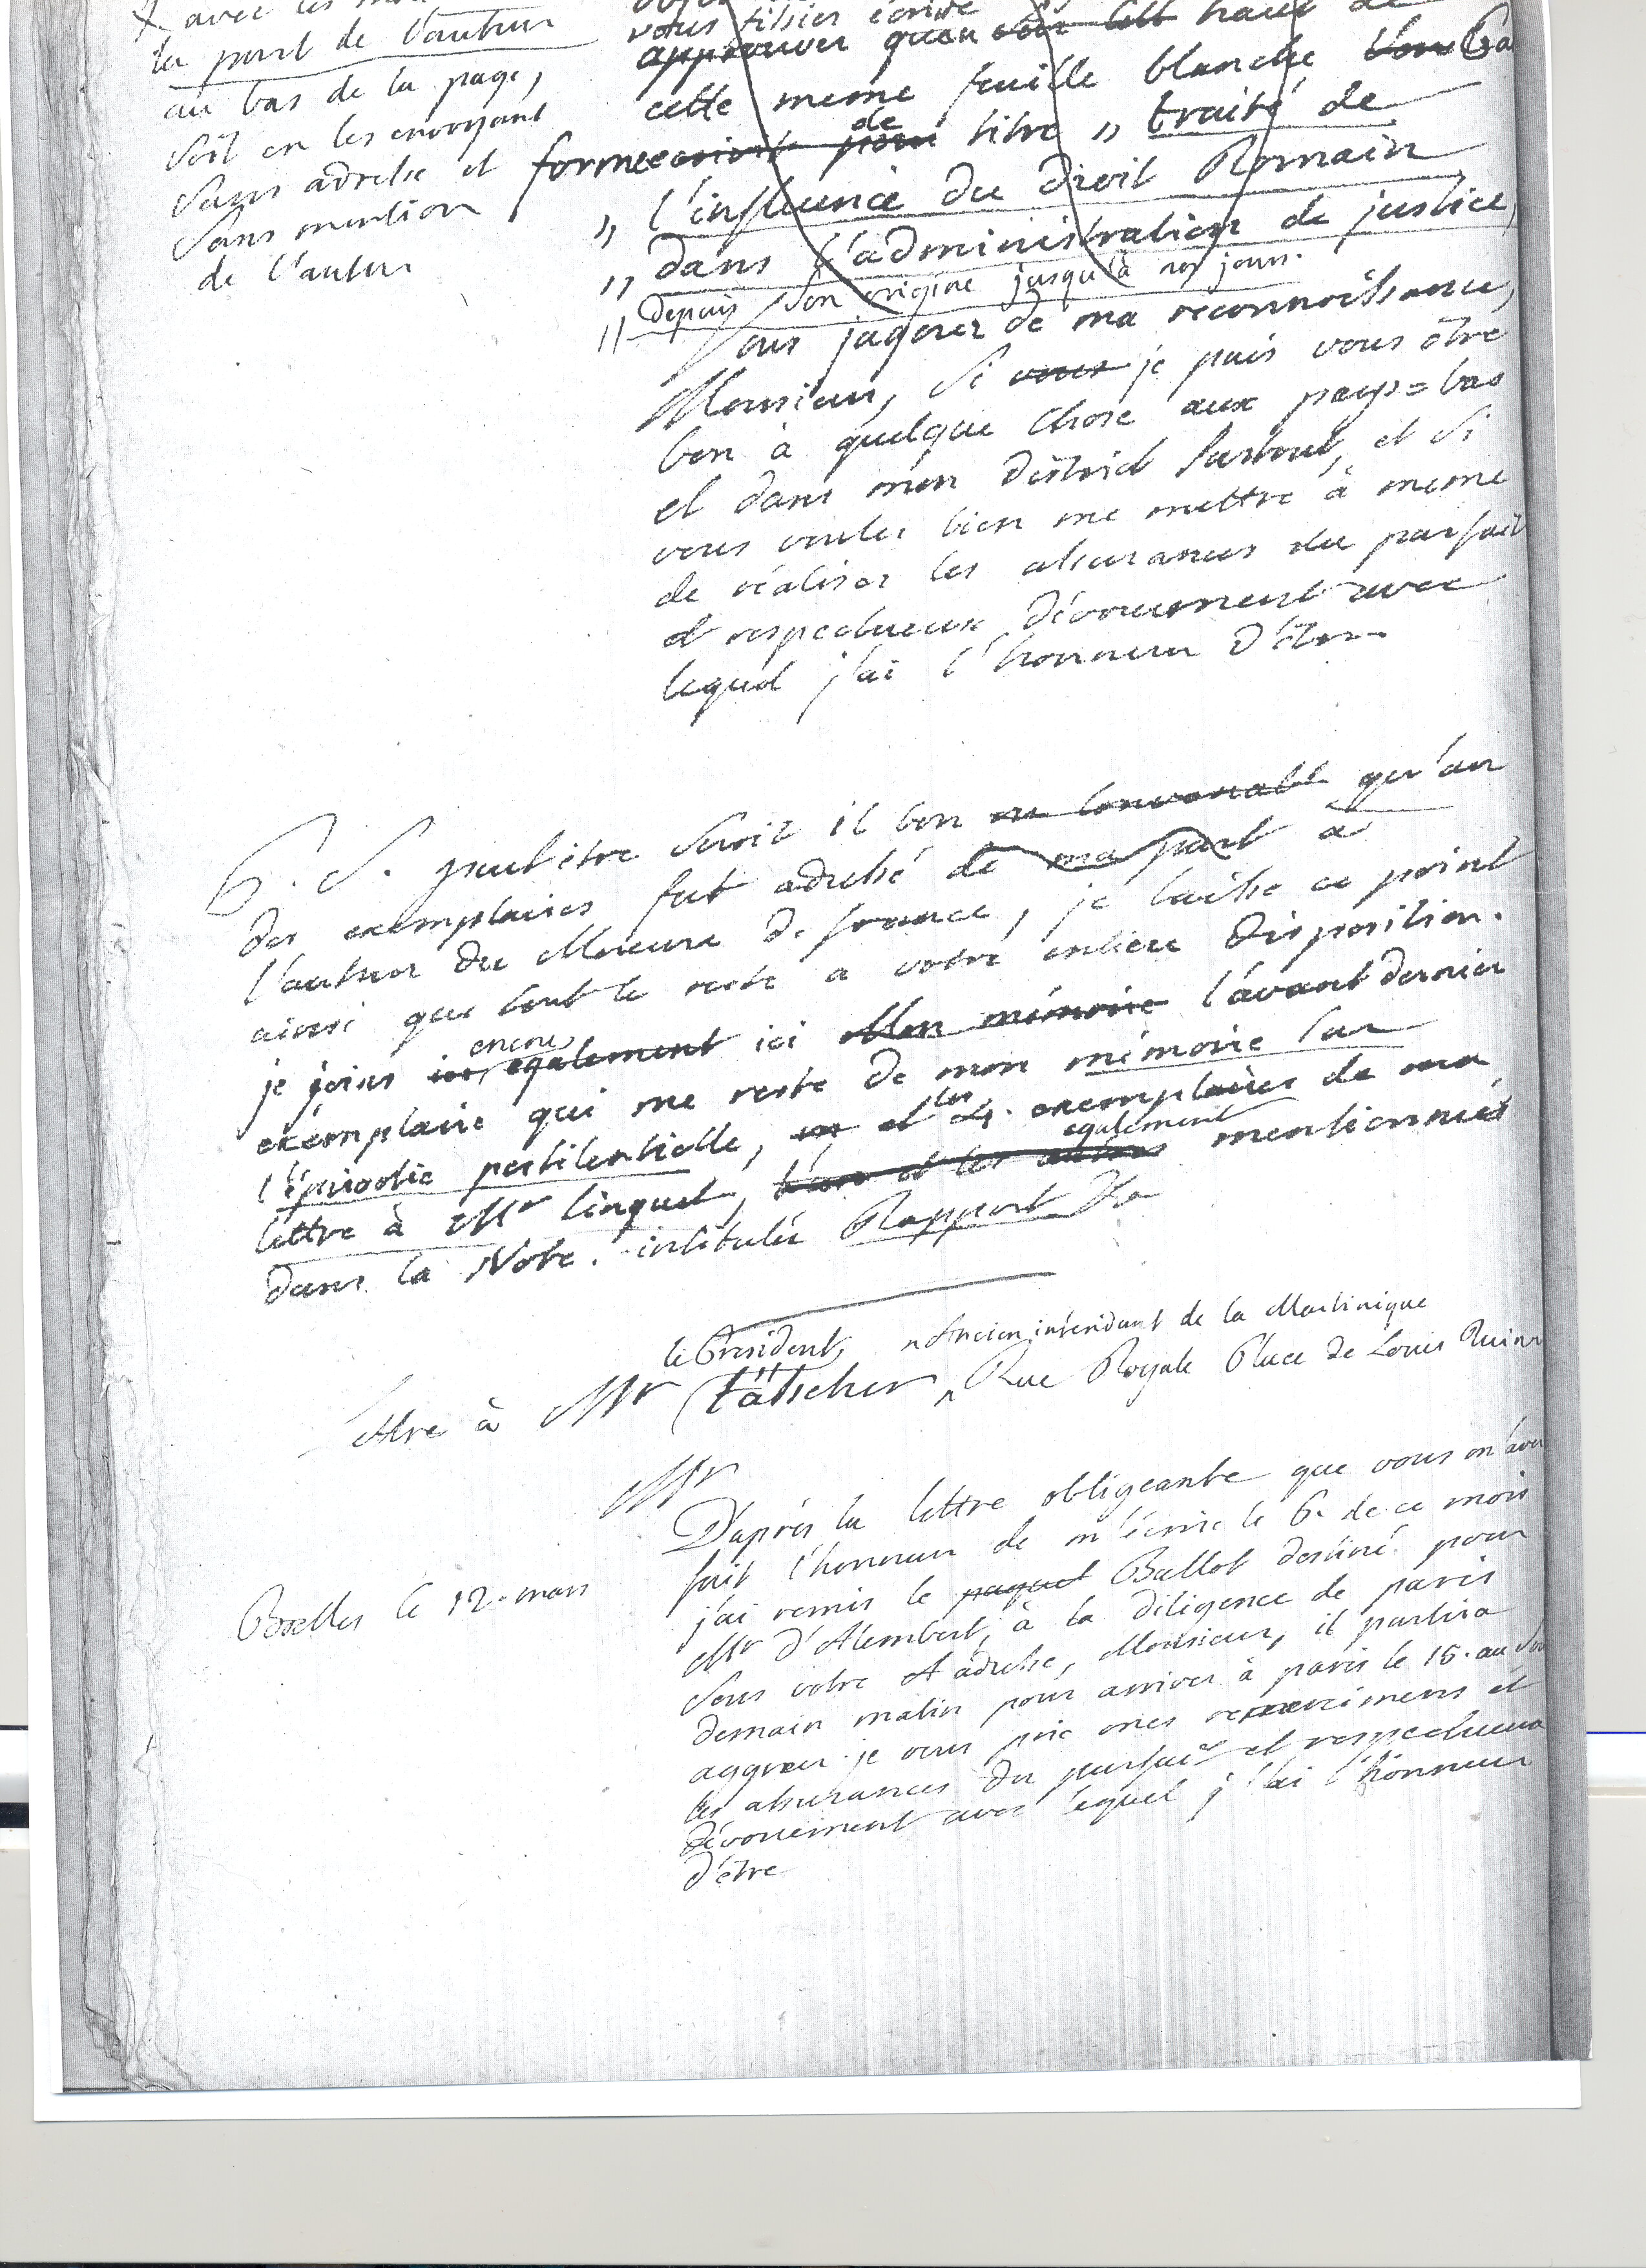 avec les
la part de l'auteur
au bas de la page,
soit en les envoyant
sans adresse et
sans mention
de l'auteur
vous fissiez écrire
approuver qu'en haut de
cette meme feuille blanche
forme de titre „ traité de
„ l'influence du droit Romain
„ dans l'administration de justice,
„ depuis son origine jusqu'à nos jours.
Vous jugerez de ma reconnoissance,
Monsieur, si vous je puis vous être
bon à quelque chose aux pays=bas
et dans mon district surtout, et si
vous voulez bien me mettre à meme
de réaliser les assurances du parfait
et respectueux dévouement avec
lequel j'ai l'honneur d'être
P. S. peut être seroit il bon ou convenable qu'un
des exemplaires fut adressé de ma part à
l'auteur du Mercure de france, je laisse ce point
ainsi que tout le reste a votre entiere disposition.
je joins encore egalement ici Mon mémoire l'avant dernier
exemplaire qui me reste de mon mémoire sur
l'épizootie pestilentielle, et les 4. exemplaires de ma
lettre à Mr linguet, l'un et les autres egalement mentionnés
dans la Note. intitulée Rapport &a
Lettre à Mr le Président tascher, Ancien intendant de la Martinique Rue Royale Place de Louis Quinze
Mr
Bxelles le 12. mars
D'après la lettre obligeante que vous m'avez
fait l'honneur de m'écrire le 6. de ce mois
j'ai remis le paquet Ballot destiné pour
Mr d'Alembert, à la diligence de paris
sous votre adresse, Monsieur, il partira
demain matin pour arriver à paris le 15. au soir
aggréez je vous prie mes remercimens et
les assurances du parfait et respectueux
dévouement avec lequel j'ai l'honneur
d'être